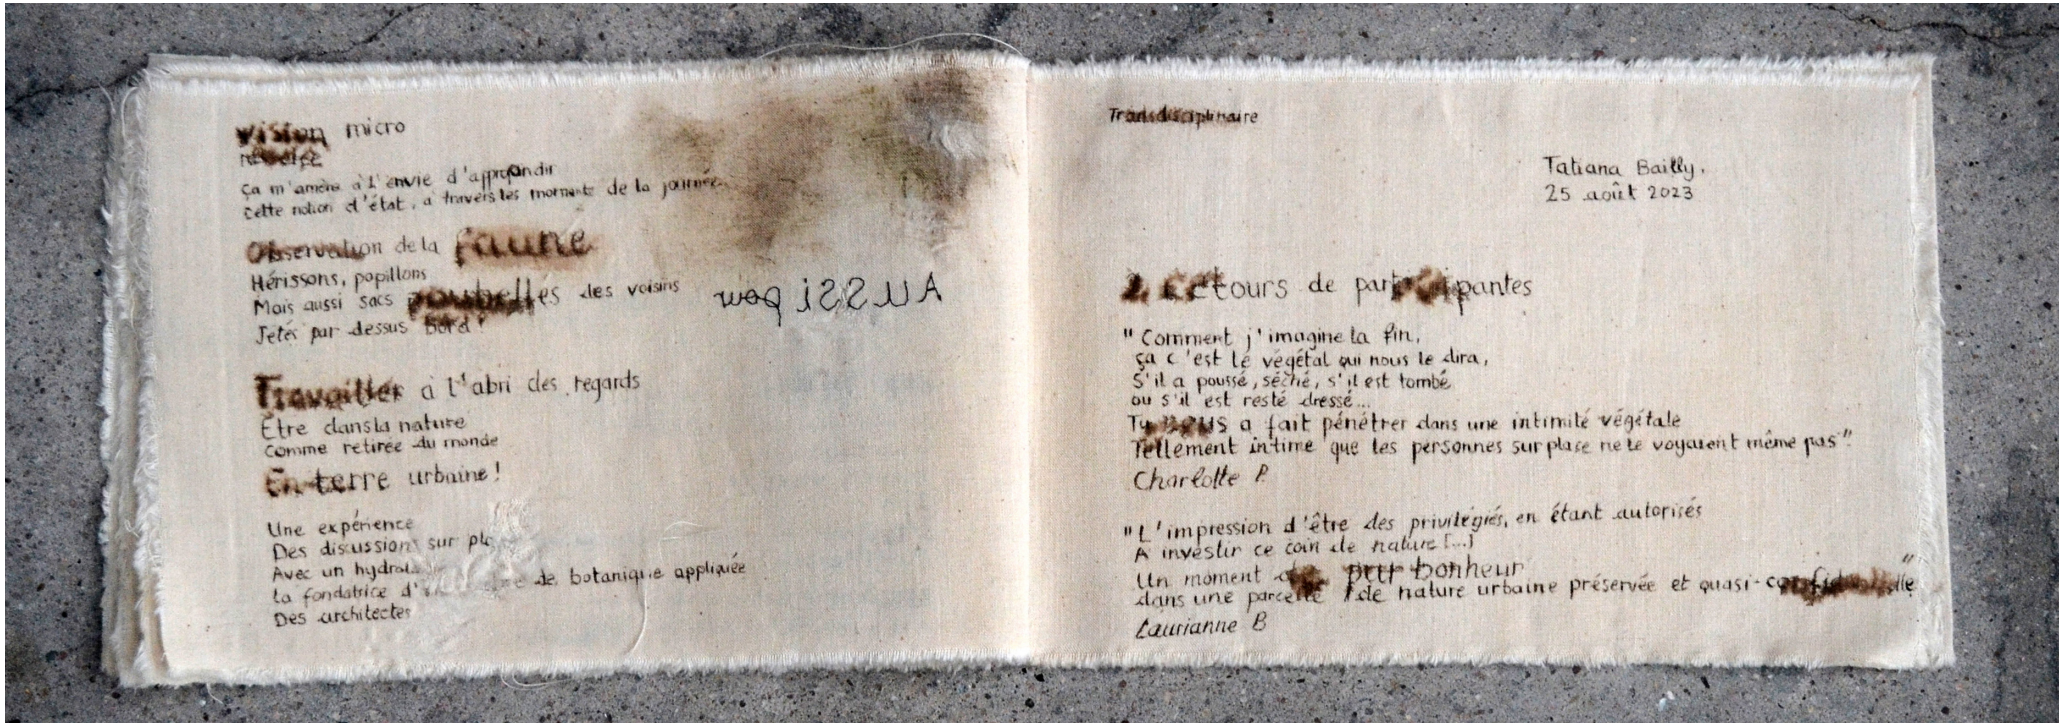 vision micro
Ça m'amène à l'envie d'approfondir
Cette notion d'état, a travers les moments de la journée
Observation de la faune
Hérissons, papillons
Mais aussi sacs poubelles des voisins
Jetés par dessus bord !
Aussi pour
Travailler à l'abri des regards
Etre dans la nature
Comme retirée du monde
En terre urbaine !
Une expérience
Des discussions sur
Avec un
La fondatrice d' de botanique appliquée
Des architectes
Transdisciplinaire
Tatiana Bailly.
25 août 2023
2 retours de participantes
" Comment j'imagine la fin,
ça c'est le végétal qui nous le dira,
S'il a poussé, séché, s'il est tombé
ou s'il est resté dressé...
Tu nous a fait pénétrer dans une intimité végétale
Tellement intime que les personnes sur plase ne le voyaient même pas"
Charlotte P.
"L'impression d'être des privilégiés, en étant autorisés
A investir ce coin de nature [...]
Un moment de pur bonheur
dans une parcelle de nature urbaine préservée et quasi-confidentielle"
Laurianne B